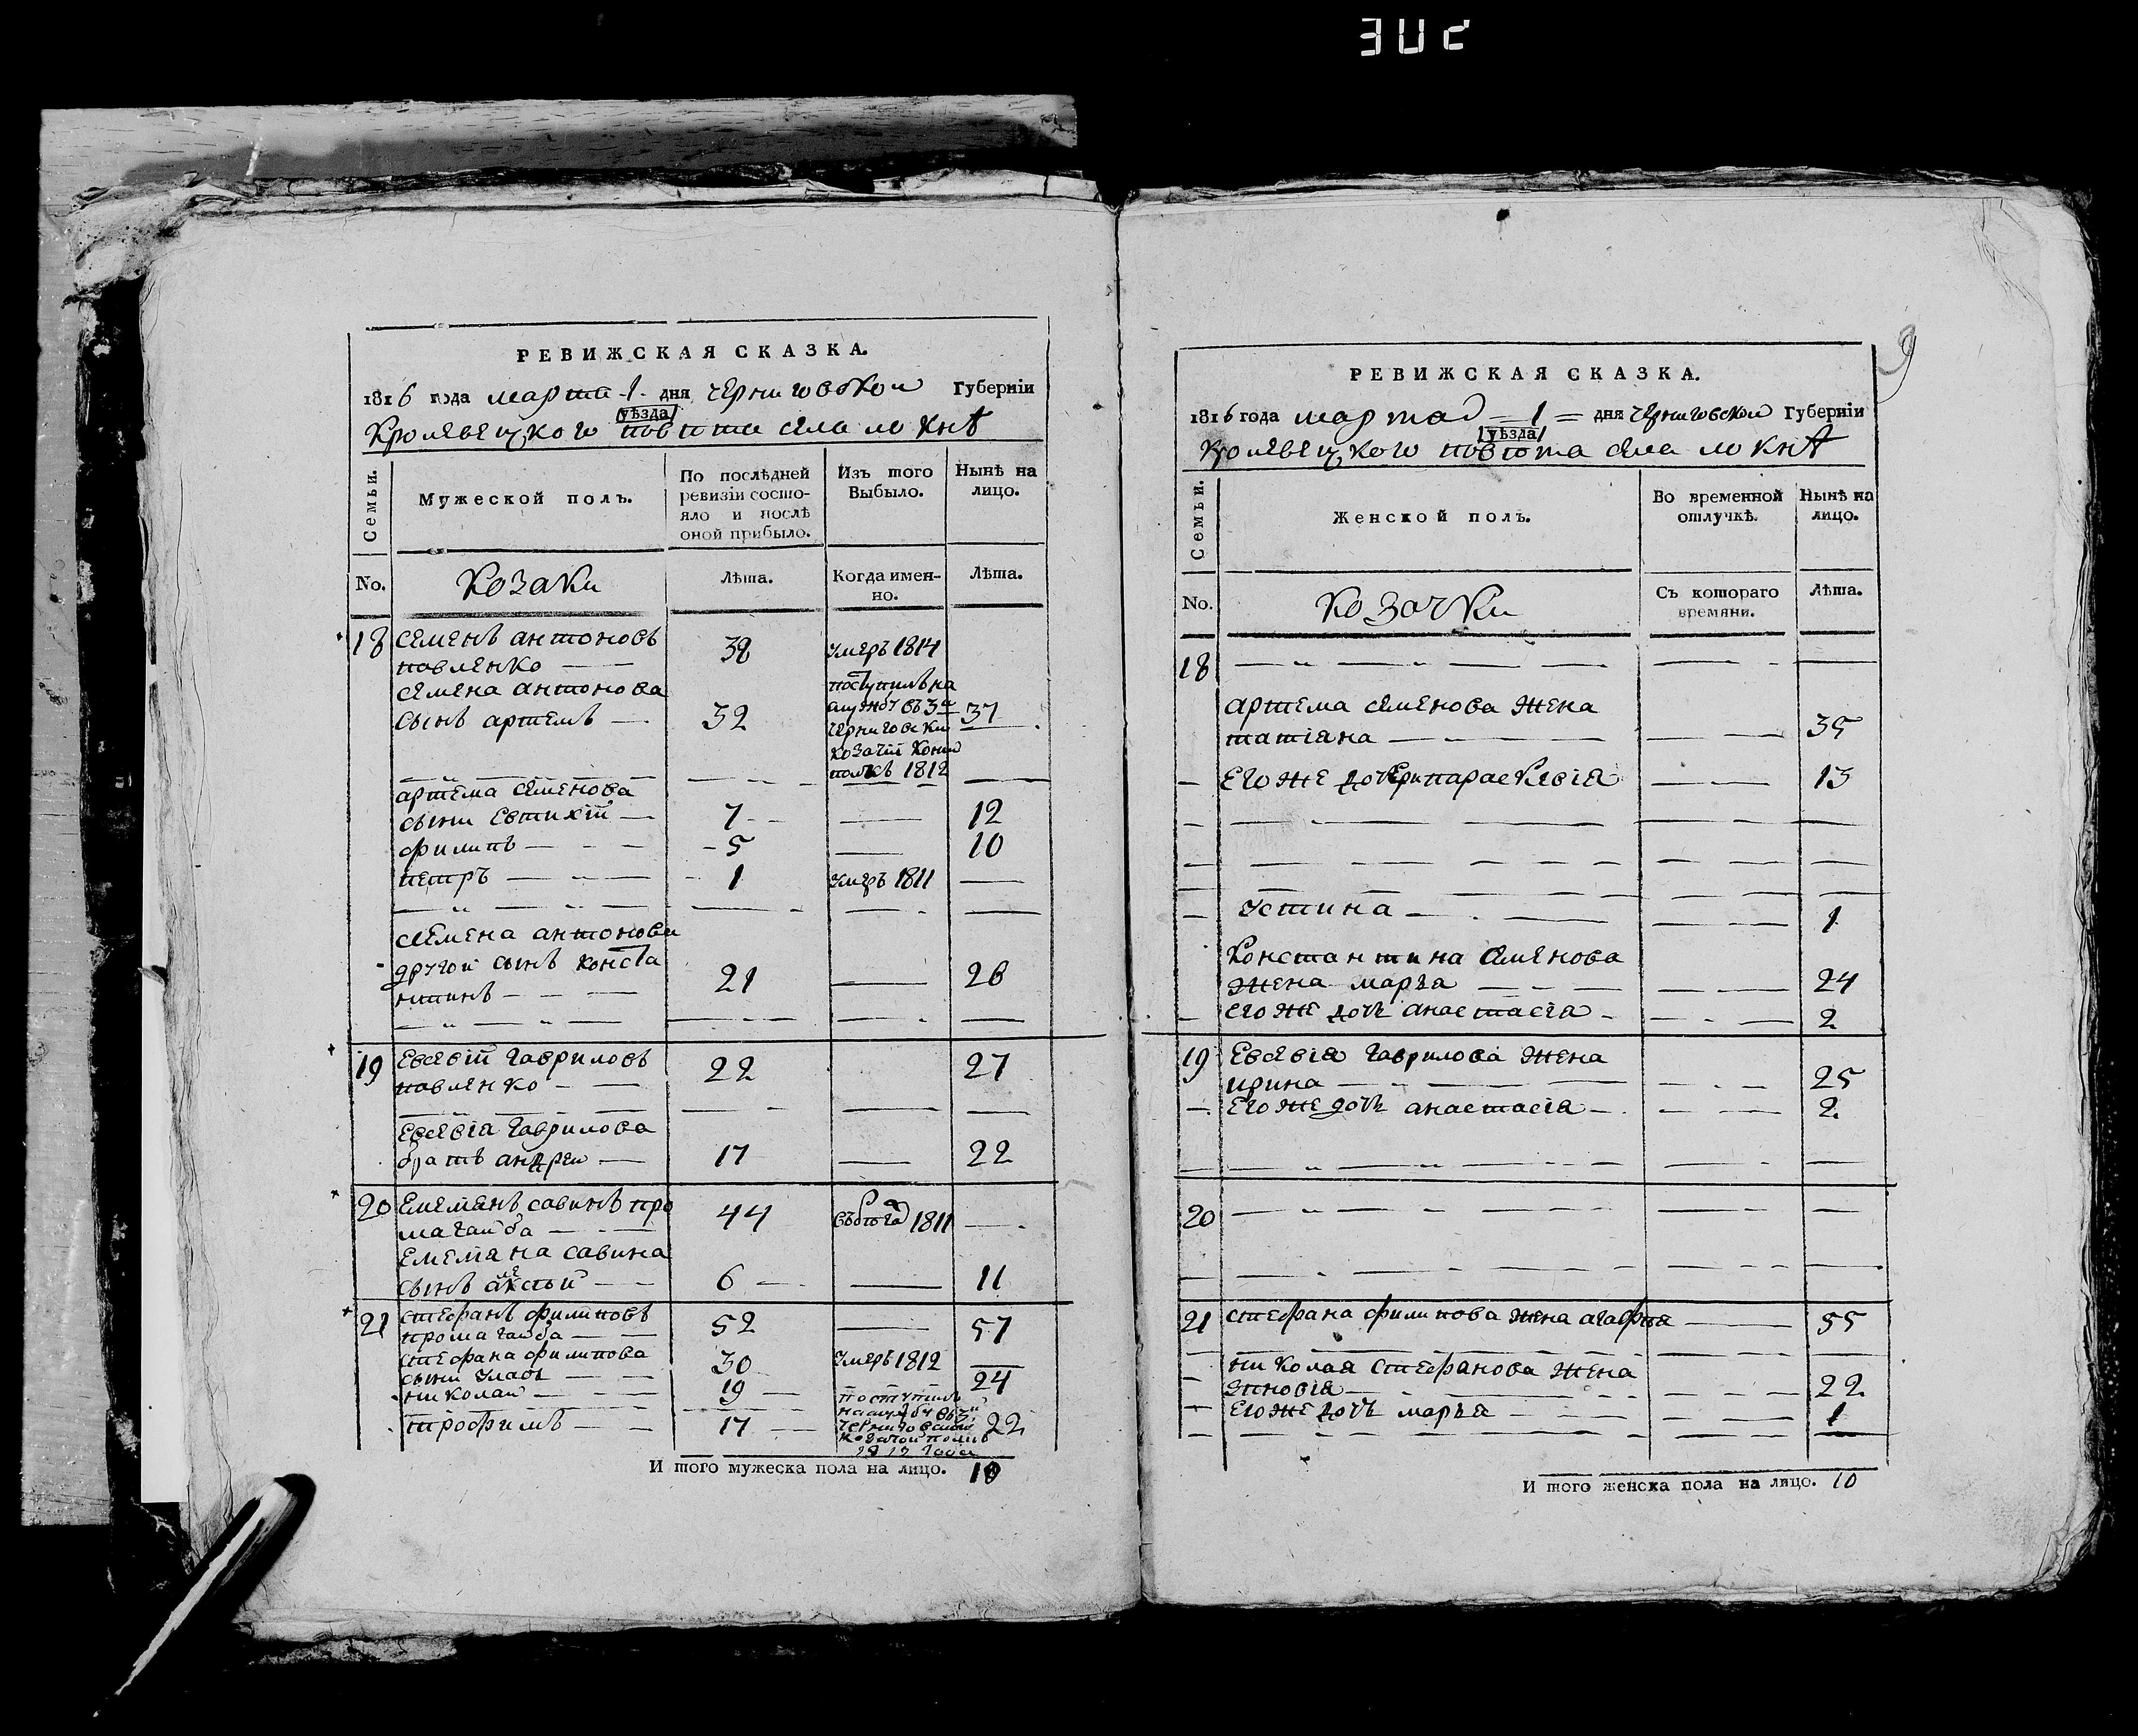 РЕВИЖСКАЯ СКАЗКА.
1816 года марта 1 дня черниговской Губерніи
уѣзда
Кролевецкого повѣта села локнѣ
Семьи.
Мужеской полъ.
По послѣдней ревизіи состояло и послѣ оной прибыло.
Изъ того Выбыло.
Нынѣ на лицо.
No.
козаки
Лѣта.
Когда имен-
но.
Лѣта.
18 Семенъ антоновъ
павленко 38 умеръ 1814
Семена антонова
сынъ артемъ 32 37
поступилъ на
службу въ 3й
черниговскій
козачій конній
полкъ 1812
артема семенова
сыни Евтихій 7 12
филипъ 5 10
петръ 1 умеръ 1811
семена антонова
другой сынъ конста
нтинъ 21 26
19 Евсевій гавриловъ
павленко 22 27
Евсевія гаврилова
братъ андрей 17 22
20 Емелянъ савинъ про
магайба 44 1811
Емеляна савина
сынъ алексѣй 6 11
21 стефанъ филиповъ
промагайба 52 57
стефана филипова
сыни 30 умеръ 1812
николай 19 24
трофимъ 17 22
поступилъ
на службу въ
черниговскій
козачой полкъ
1812 года
И того мужеска пола на лицо. 10
9
РЕВИЖСКАЯ СКАЗКА.
1816 года марта 1 дня черниговской Губерніи
уѣзда
кролевецкого повѣта села локнѣ
Семьи.
Женской полъ.
Во временной
отлучкѣ.
Нынѣ на
лицо.
No.
козачки
Съ котораго
времяни.
Лѣта.
18
артема семенова жена
татіяна 35
Его же дочери параскевія 13
устина 1
константина семенова
жена марья 24
Его же дочь анастасія 2
19 Евсевія гаврилова жена
ирина 25
Его же дочь анастасія 2
20
21 стефана филипова жена агафія 55
николая стефанова жена
зиновія 22
Его же дочь марья 1
И того женска пола на лицо. 10